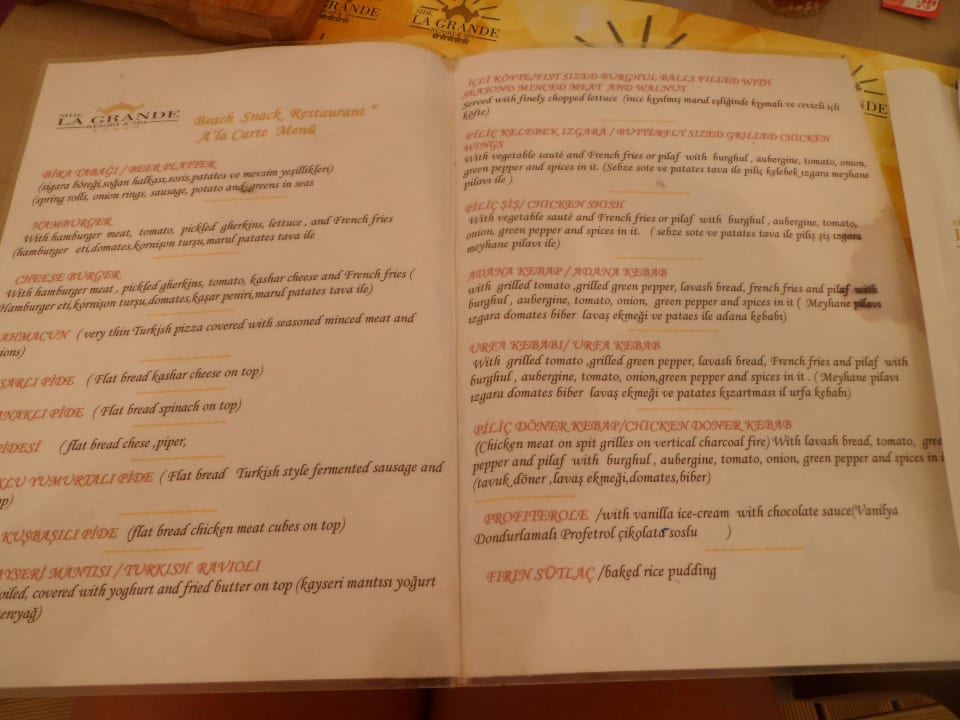 SIDE
LA GRANDE
RESORT & SPA
SIDE
LA GRANDE
RESORT & SPA
Beach Snack Restaurant "
A'la Carte Menü
BİRA TABAĞI / BEER PLATTER
(sigara böreği,soğan halkası,sosis,patates ve mevsim yeşillikleri)
(spring rolls, onion rings, sausage, potato and greens in seas
HAMBURGER
With hamburger meat, tomato, pickled gherkins, lettuce , and French fries
(hamburger eti,domates,kornişon turşu,marul patates tava ile
CHEESE BURGER
With hamburger meat , pickled gherkins, tomato, kashar cheese and French fries (
Hamburger eti,kornişon turşu,domates,kaşar peniri,marul patates tava ile)
AHMACUN ( very thin Turkish pizza covered with seasoned minced meat and
ions)
ŞARLI PİDE ( Flat bread kashar cheese on top)
ANAKLI PİDE ( Flat bread spinach on top)
PİDESİ (flat bread chese ,piper,
KLU YUMURTALI PİDE ( Flat bread Turkish style fermented sausage and
op)
KUŞBAŞILI PİDE (flat bread chicken meat cubes on top)
AYSERİ MANTISI / TURKISH RAVIOLI
oiled, covered with yoghurt and fried butter on top (kayseri mantısı yoğurt
ereyağ)
İÇLİ KÖFTE/FIST SIZED BURGHUL BALLS FILLED WITH
SEASOND MINCED MEAT AND WALNUT
Served with finely chopped lettuce (ince kıyılmış marul eşliğinde kıymalı ve cevizli içli
köfte)
PİLİÇ KELEBEK IZGARA / BUTTERFLY SIZED GRILLED CHICKEN
WINGS
With vegetable sauté and French fries or pilaf with burghul , aubergine, tomato, onion,
green pepper and spices in it. (Sebze sote ve patates tava ile piliç kelebek,ızgara meyhane
pilavı ile )
PİLİÇ ŞİŞ/ CHICKEN SHISH
With vegetable sauté and French fries or pilaf with burghul , aubergine, tomato,
onion, green pepper and spices in it. ( sebze sote ve patates tava ile piliş şiş ızgara
meyhane pilavı ile)
ADANA KEBAP / ADANA KEBAB
with grilled tomato ,grilled green pepper, lavash bread, french fries and pilaf with
burghul , aubergine, tomato, onion, green pepper and spices in it ( Meyhane pilavı
ızgara domates biber lavaş ekmeği ve pataes ile adana kebabı)
URFA KEBABI/ URFA KEBAB
With grilled tomato ,grilled green pepper, lavash bread, French fries and pilaf with
burghul , aubergine, tomato, onion,green pepper and spices in it . ( Meyhane pilavı
ızgara domates biber lavaş ekmeği ve patates kızartması il urfa kebabı)
PİLİÇ DÖNER KEBAP/CHICKEN DONER KEBAB
(Chicken meat on spit grilles on vertical charcoal fire) With lavash bread, tomato, gree
pepper and pilaf with burghul , aubergine, tomato, onion, green pepper and spices in i
(tavuk döner ,lavaş ekmeği,domates,biber)
PROFITEROLE /with vanilla ice-cream with chocolate sauce(Vanilya
Dondurlamalı Profetrol çikolata soslu )
FIRIN SÜTLAÇ /baked rice pudding